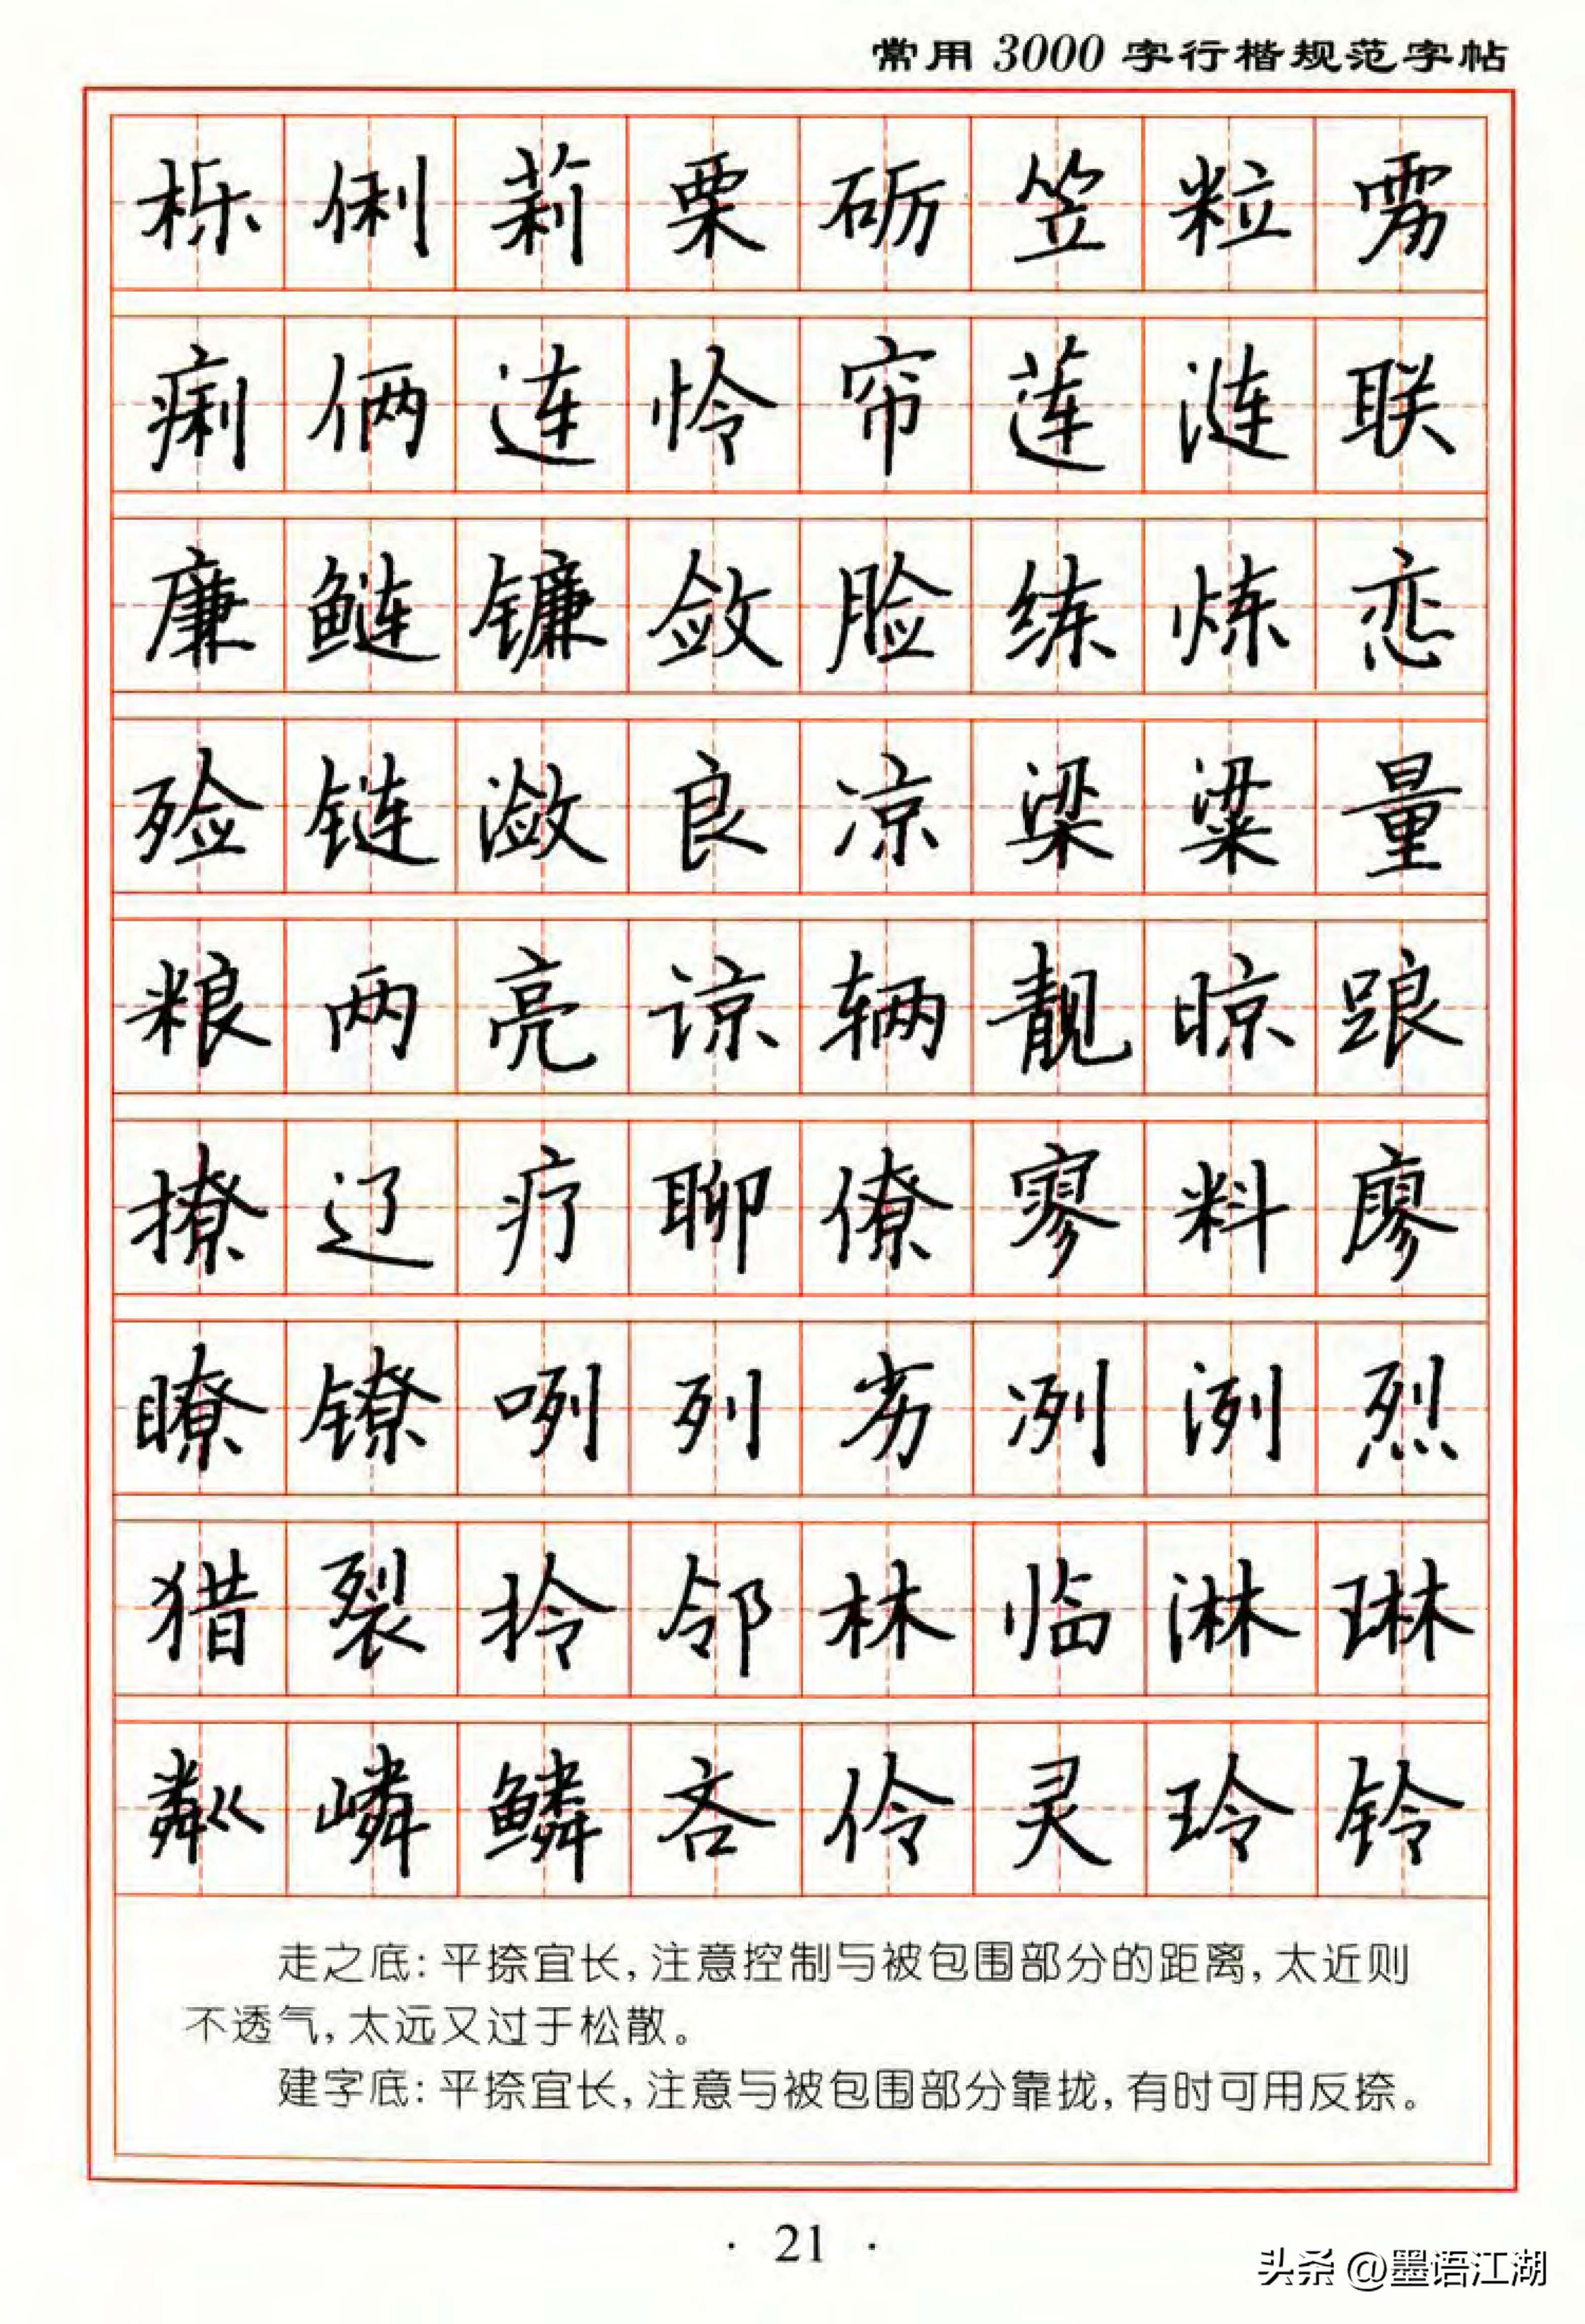 常用3000字行楷规范字帖
栎俐莉栗砺笠粒雳
痢俩连怜帘莲涟联
廉鲢镰敛脸练炼恋
殓链潋良凉梁粱量
粮两亮谅辆靓晾踉
撩辽疗聊僚寥料廖
瞭镣咧列劣冽洌烈
猎裂拎邻林临淋琳
粼嶙鳞吝伶灵玲铃
走之底:平捺宜长,注意控制与被包围部分的距离,太近则
不透气,太远又过于松散。
建字底:平捺宜长,注意与被包围部分靠拢,有时可用反捺。
· 21 ·
头条 @墨语江湖